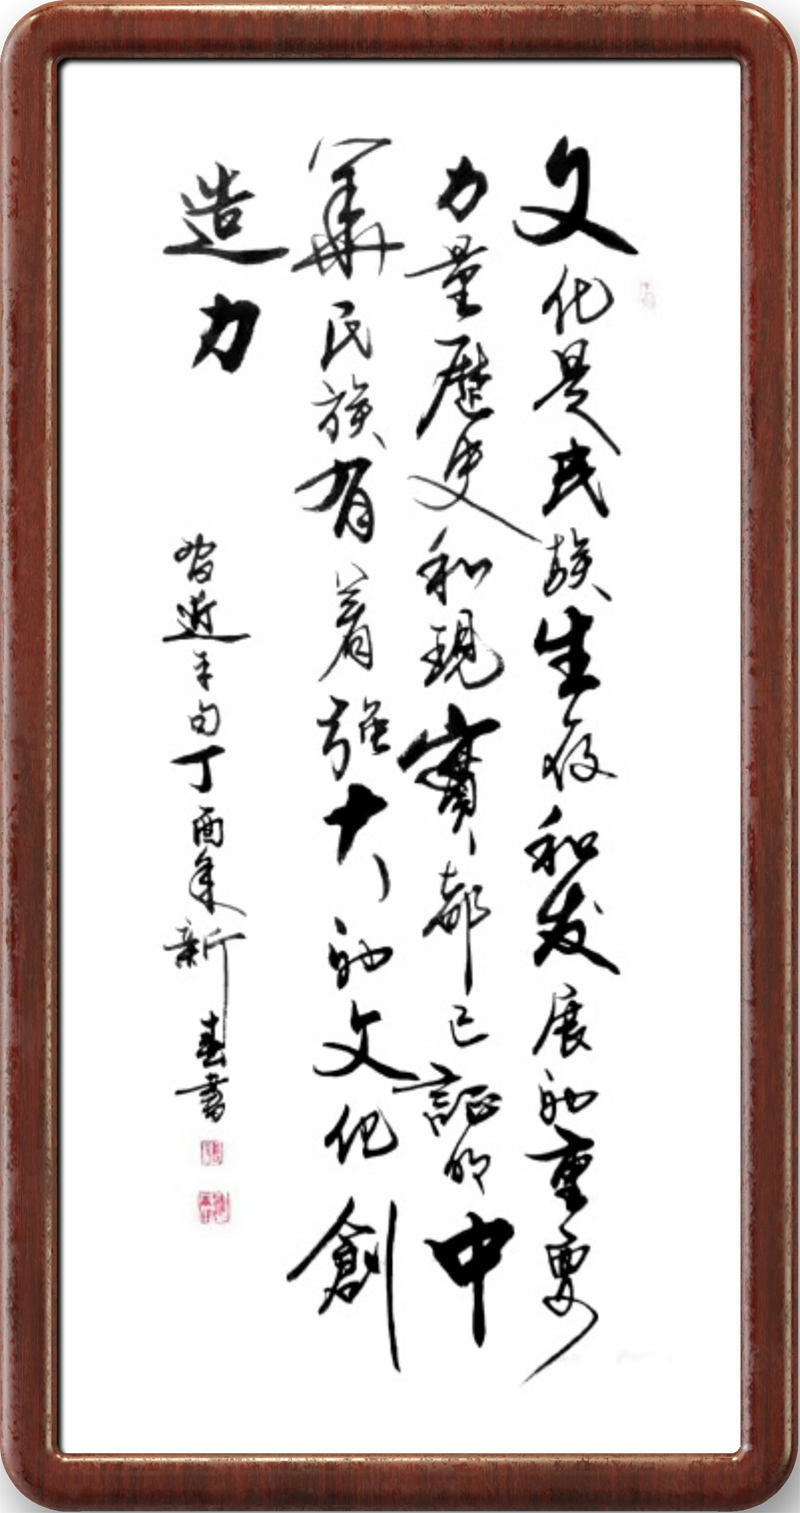 文化是民族生存和发展的重要
力量歷史和現實都已証明中
華民族有着强大的文化創
造力
習近平句丁酉年新春書